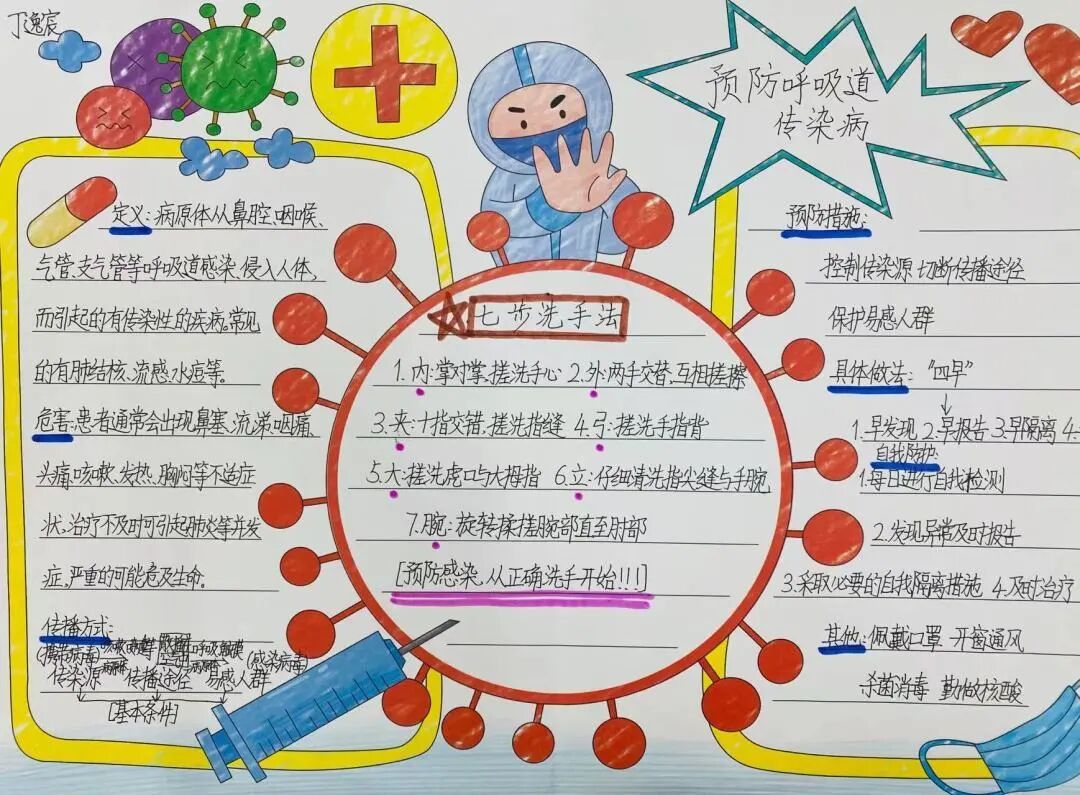 丁逸宸
预防呼吸道
传染病
定义:病原体从鼻腔、咽喉、
气管、支气管等呼吸道感染、侵入人体,
而引起的有传染性的疾病。常见
的有肺结核、流感、水痘等。
危害:患者通常会出现鼻塞、流涕、咽痛、
头痛、咳嗽、发热、胸闷等不适症
状,治疗不及时可引起肺炎等并发
症,严重的可能危及生命。
传播方式:
(携带病毒) (感染病毒)
传染源 传播途径 易感人群
[基本条件]
七步洗手法
1.内:掌对掌,搓洗手心 2.外:两手交替,互相搓擦
3.夹:十指交错,搓洗指缝 4.弓:搓洗手指背
5.大:搓洗虎口与大拇指 6.立:仔细清洗指尖缝与手腕
7.腕:旋转揉搓腕部直至肘部
[预防感染,从正确洗手开始!!!]
预防措施:
控制传染源 切断传播途径
保护易感人群
具体做法:“四早”
1.早发现 2.早报告 3.早隔离 4.
自我防护:
1.每日进行自我检测
2.发现异常及时报告
3.采取必要的自我隔离措施 4.及时治疗
其他:佩戴口罩 开窗通风
杀菌消毒 勤做核酸